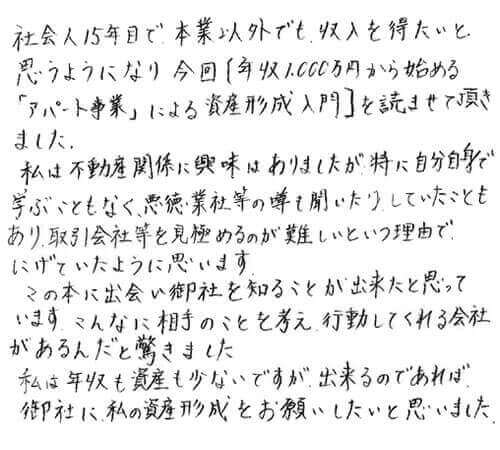 社会人15年目で、本業以外でも、収入を得たいと、
思うようになり 今回[年収1.000万円から始める
「アパート事業」による資産形成入門]を読ませて頂き
ました.
私は不動産関係に興味はありましたが、特に自分自身で
学ぶこともなく、悪徳業社等の噂も聞いたり、していたことも
あり、取引会社等を見極めるのが難しいという理由で、
にげていたように思います.
この本に出会い御社を知ることが出来たと思って
います. こんなに相手のことを考え、行動してくれる会社
があるんだと驚きました
私は年収も資産も少ないですが、出来るのであれば、
御社に、私の資産形成をお願いしたいと思いました.